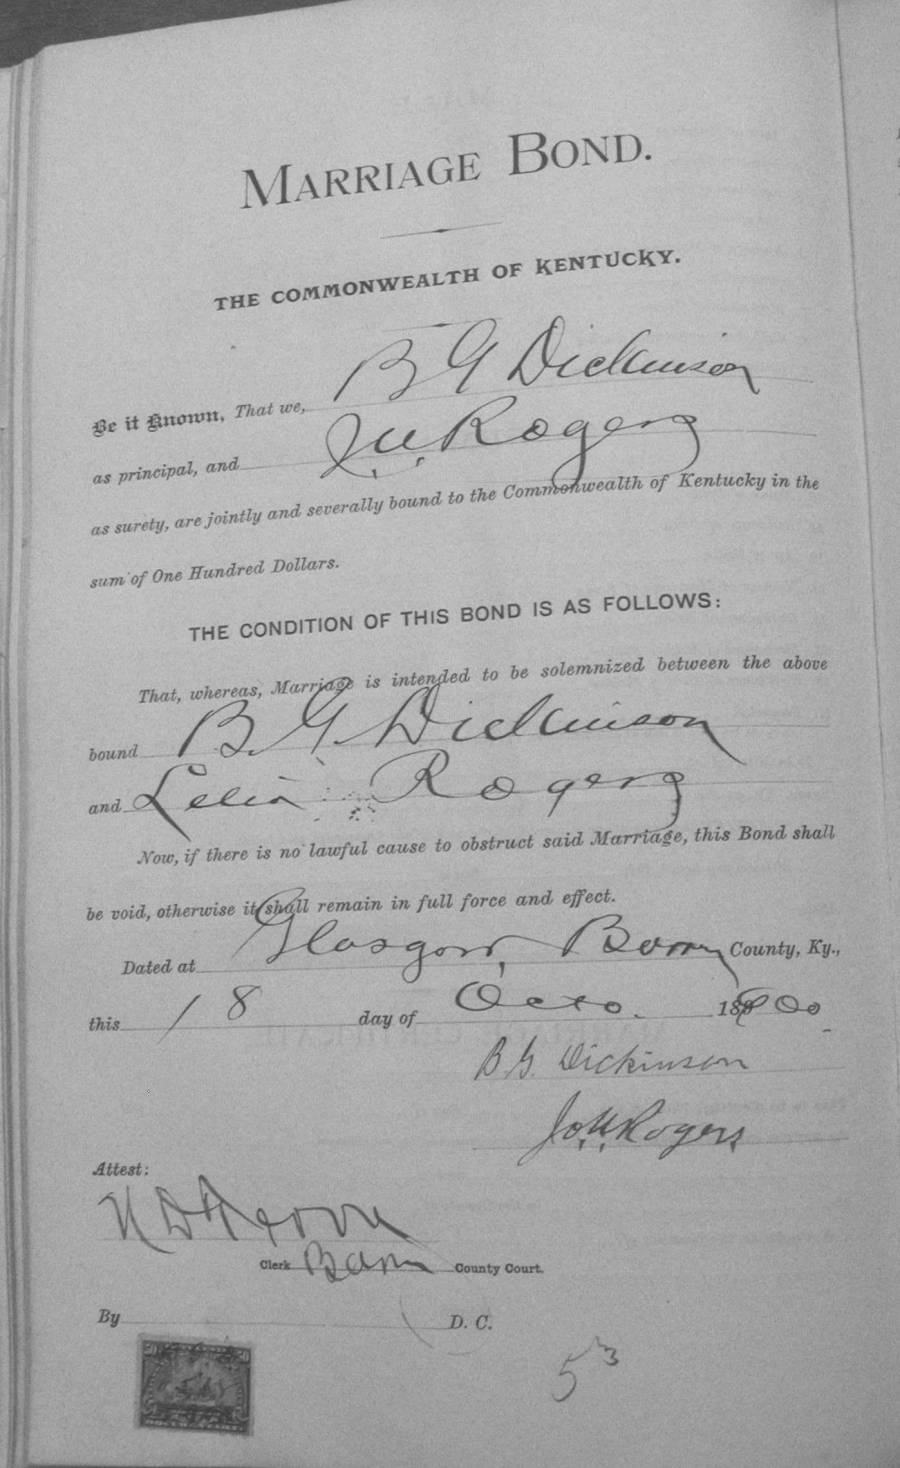 MARRIAGE BOND.
THE COMMONWEALTH OF KENTUCKY.
Be it Known, That we, B G Dickinson
as principal, and J. W. Rogers
as surety, are jointly and severally bound to the Commonwealth of Kentucky in the
sum of One Hundred Dollars.
THE CONDITION OF THIS BOND IS AS FOLLOWS:
That, whereas, Marriage is intended to be solemnized between the above
bound B. G. Dickinson
and Lelia Rogers
Now, if there is no lawful cause to obstruct said Marriage, this Bond shall
be void, otherwise it shall remain in full force and effect.
Dated at Glasgow, Barren County, Ky.,
this 18 day of Octo. 1900
B. G. Dickinson
Rogers
Attest:
Clerk Barren County Court.
By D. C.
50 50
53